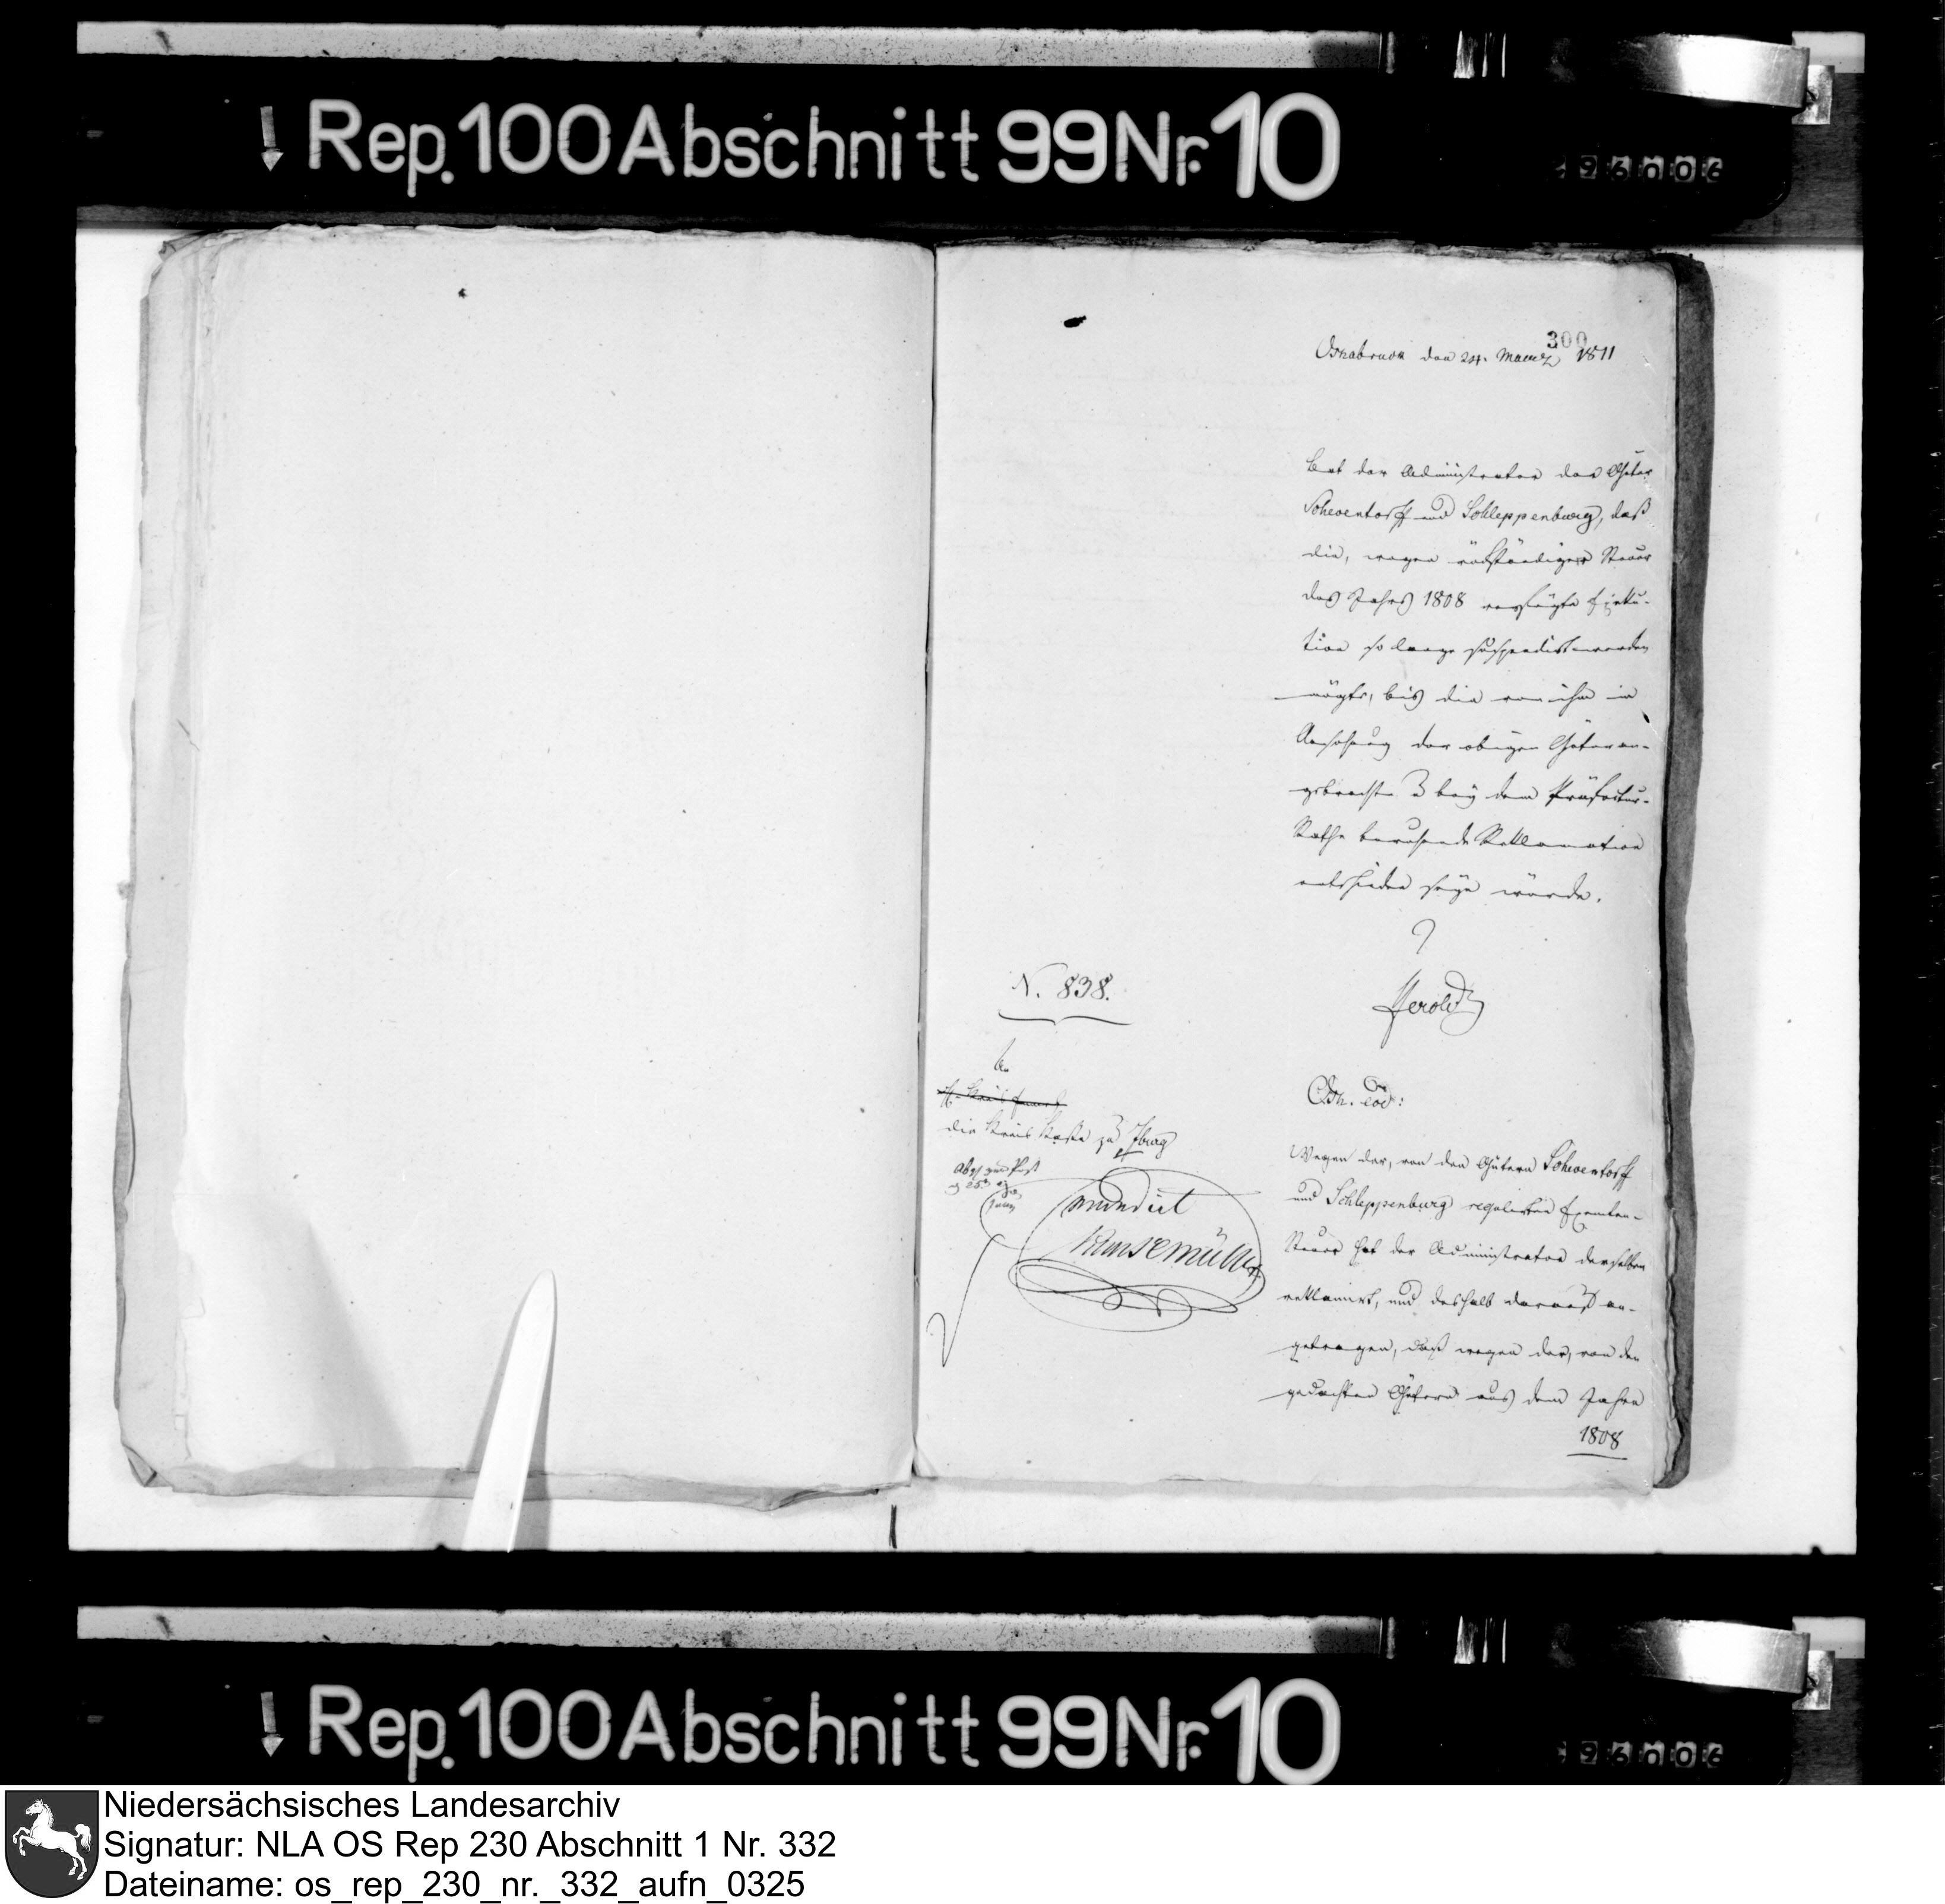 Rep. 100 Abschnitt 99 Nr. 10
96006
300
Osnabruck den 24. Maerz 1811
bat der Administrator der Güter
Scheventorff und Schleppenburg, daß
die, wegen rückständiger Steuer
des Jahrs 1808 verfügte Exeku-
tion so lange suspendirt werden
mögte, bis die von ihm in
Ansehung der obigen Güter an-
gebrachte & bey dem Präfectur-
Rathe beruhende Reklamation
entschieden seyn würde.
Herold
N. 838.
An
die Kreis Kasse zu Iburg
mundirt
Osn. eod:
Wegen der, von den Gütern Scheventorff
und Schleppenburg regulirten Exemten-
Steuer hat der Administrator derselben
reklamirt, und deshalb darauf an-
getragen, daß wegen der, von den
gedachten Gütern aus dem Jahre
1808
Rep. 100 Abschnitt 99 Nr. 10
96006
Niedersächsisches Landesarchiv
Signatur: NLA OS Rep 230 Abschnitt 1 Nr. 332
Dateiname: os_rep_230_nr._332_aufn_0325